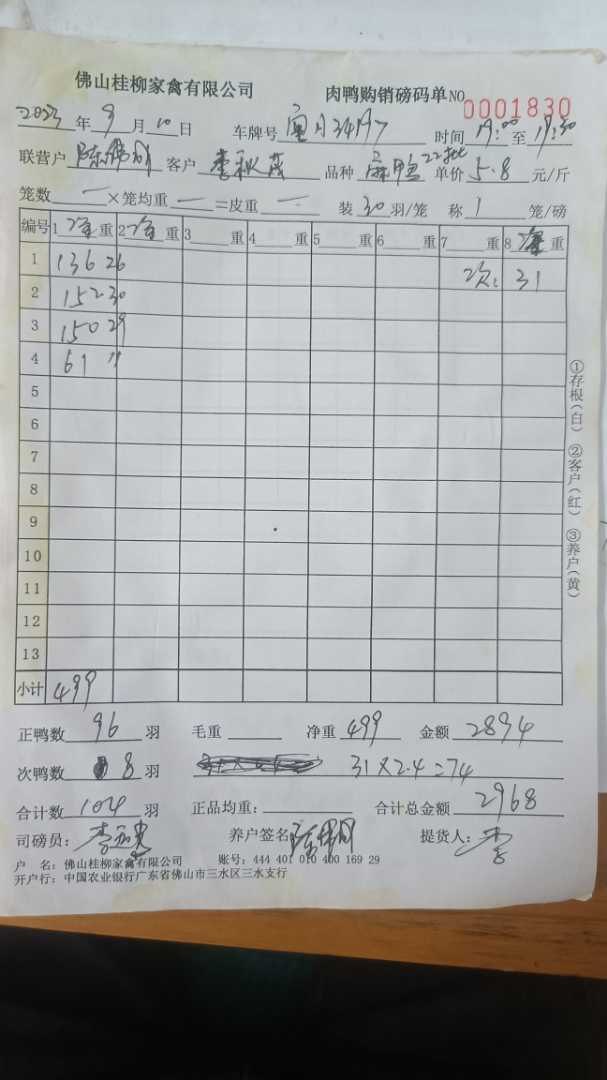 佛山桂柳家禽有限公司 肉鸭购销磅码单NO 0001830
2023年9月10日 车牌号 时间 19:00至19:30
联营户 陈伟明 客户 李秋茂 品种 麻鸭 22批 单价 5.8 元/斤
笼数 一 ×笼均重 一 =皮重 一 装 30 羽/笼 称 1 笼/磅
编号 1 净重 2 净重 3 重 4 重 5 重 6 重 7 重 8 重
1 136 26 次: 31
2 152 30
3 150 29
4 61 11
5
6
7
8
9
10
11
12
13
小计 499
正鸭数 96 羽 毛重 净重 499 金额 2894
次鸭数 8 羽 31×2.4=74
合计数 104 羽 正品均重: 合计总金额 2968
司磅员: 养户签名 陈伟明 提货人: 李
户 名: 佛山桂柳家禽有限公司 账号: 444 401 010 400 169 29
开户行: 中国农业银行广东省佛山市三水区三水支行
①存根(白) ②客户(红) ③养户(黄)